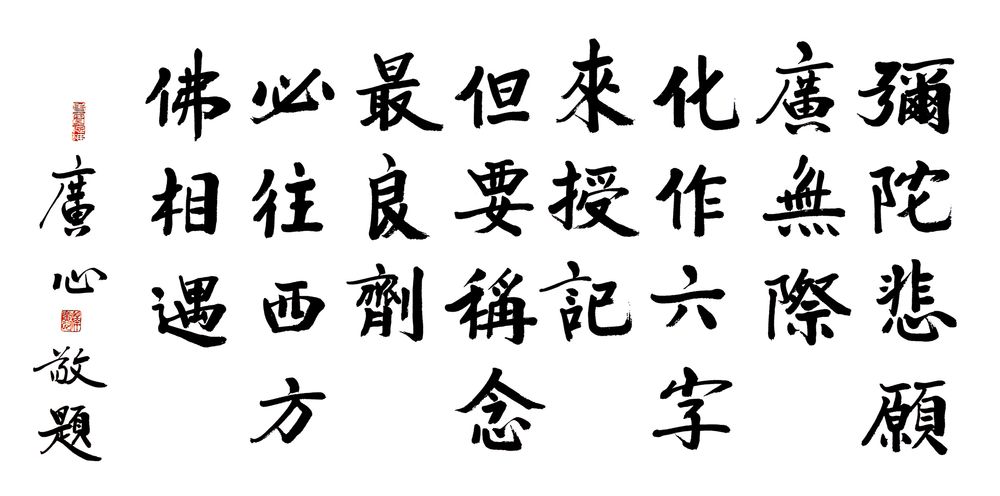 彌陀悲願
廣無際
化作六字
來授記
但要稱念
最良劑
必往西方
佛相遇
廣心敬題